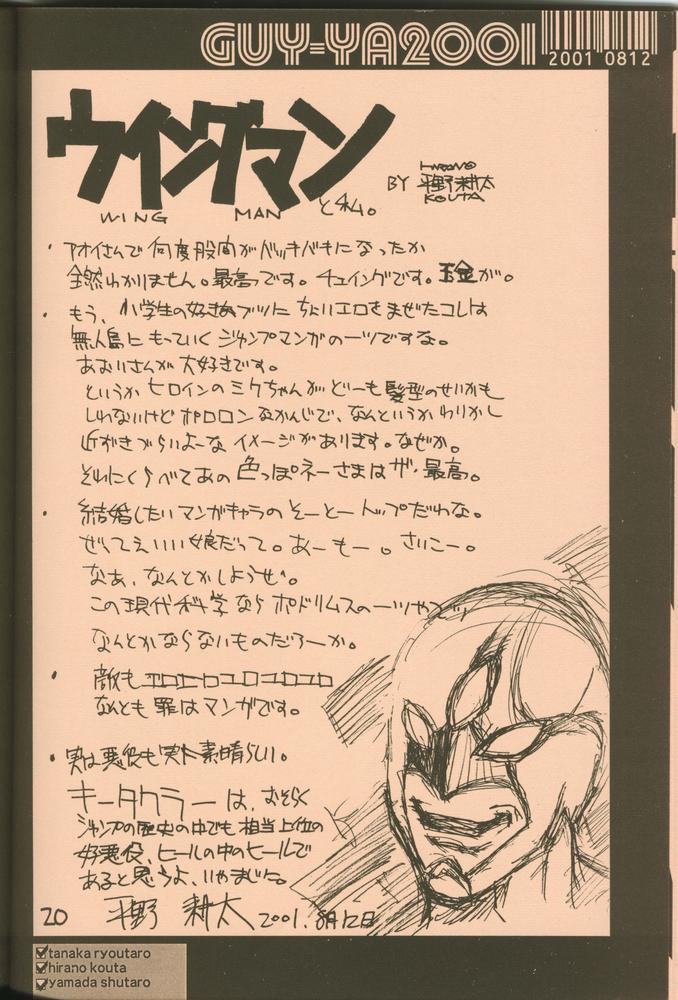 GUY-YA2001
2001 0812
ウイングマン
WING MAN と私。
BY 平野耕太
HIRANO
KOUTA
・アオイさんで何度股間がバッキバキになったか
全然わかりません。最高です。チュイングです。玉金が。
・もう、小学生の好きなブツにちょいエロをまぜたコレは
無人島にもっていくジャンプマンガの一ツですな。
あおいさんが大好きです。
というかヒロインのミクちゃんがどーも髪型のせいかも
しれないけどポロロンなかんじで、なんというかわりかし
近がきづらいよーなイメージがあります。なぜか。
それにくらべてあの色っぽネーさまはザ・最高。
・結婚したいマンガキャラのそーとートップだわな。
ぜってえいい娘だって。あーもー。さいこー。
なあ、なんとかしようぜ。
この現代科学ならポドリムスの一ツやでツ
なんとかならないものだろーか。
・敵もエロエロエロエロエロ
なんとも罪はマンガです。
・実は悪役も実ト素晴らしい。
キータクラーは、おそらく
ジャンプの歴史の中でも相当上位の
好悪役、ヒールの中のヒールで
あると思うよ、いやまじに。
平野 耕太 2001.8月12日
20
tanaka ryoutaro
hirano kouta
yamada shutaro